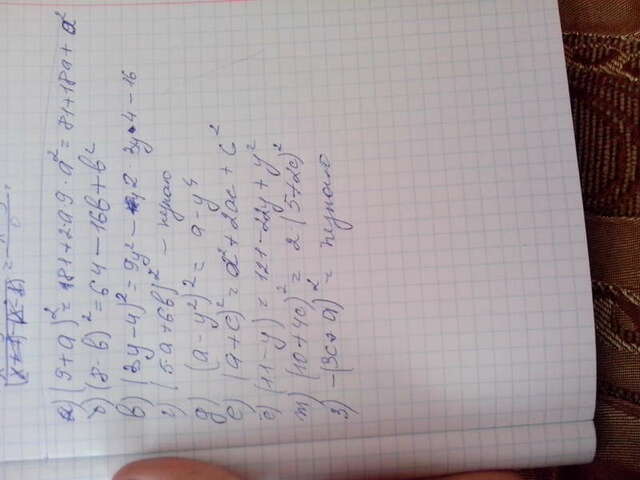 а) (9+a)² = 81+2·a·9·a² = 81+18a+a²
б) (8-b)² = 64-16b+b²
в) (3y-4)² = 9y²- 2 3y·4-16
г) (5a+6b)² -
д) (a-y²)² = a-y⁴
е) (a+c)² = a²+2ac+c²
ё) (11-y) = 121-22y+y²
(10+4c)² = 2(5+2c)²
з) -(3c+a)² =